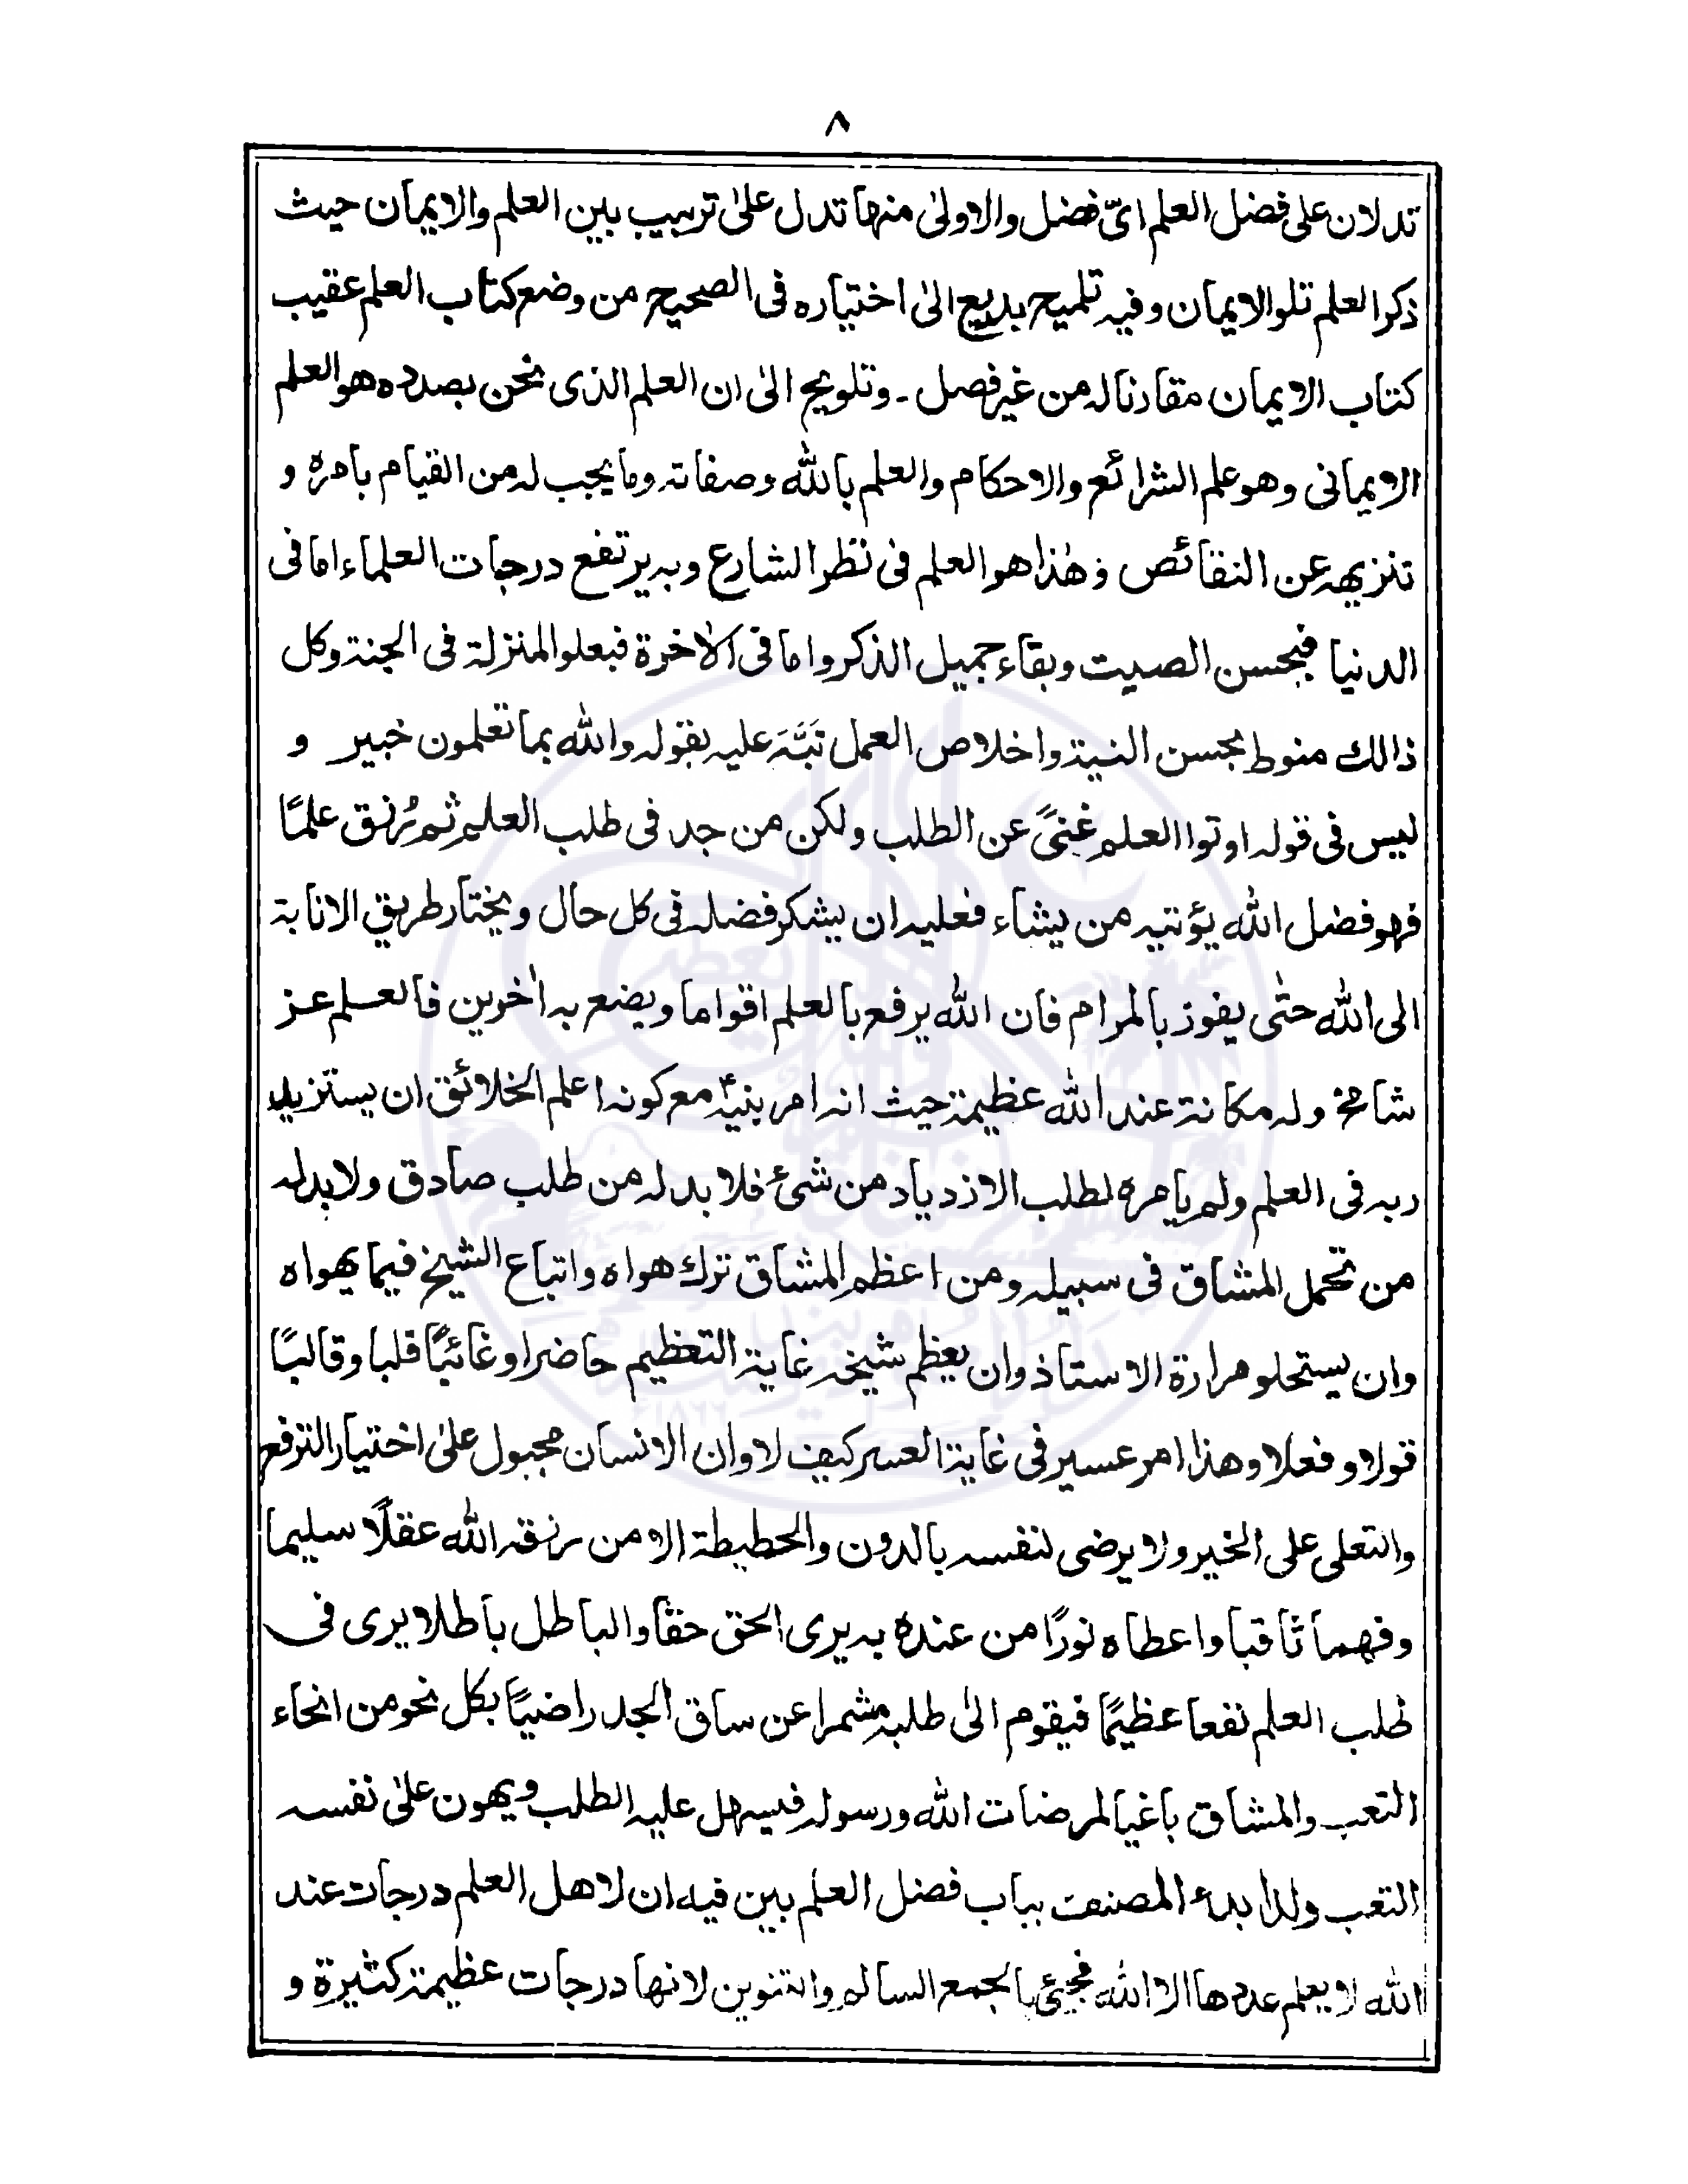 ٨
تدلان علی فضل العلم ایّ فضل والاولیٰ منها تدل علیٰ ترتیب بین العلم والایمان حیث
ذکر العلم تلو الایمان وفیه تلمیح بدیع الیٰ اختیاره فی الصحیح من وضع کتاب العلم عقیب
کتاب الایمان مقارنا له من غیر فصل ۔ وتلویح الیٰ ان العلم الذی نحن بصدده هو العلم
الایمانی وهو علم الشرائع والاحکام والعلم بالله وصفاته وما یجب له من القیام بامره و
تنزیهه عن النقائص وهٰذا هو العلم فی نظر الشارع وبه یرتفع درجات العلماء اما فی
الدنیا فبحسن الصیت وبقاء جمیل الذکر واما فی الاٰخرة فبعلو المنزلة فی الجنة وکل
ذالك منوط بحسن النیة واخلاص العمل نَبَّهَ علیه بقوله والله بما تعلمون خبیر و
لیس فی قوله اوتوا العلم غنیً عن الطلب ولکن من جد فی طلب العلم ثم رُزق علمًا
فهو فضل الله یؤتیه من یشاء فعلیه ان یشکر فضله فی کل حال ویختار طریق الانابة
الی الله حتٰی یفوز بالمرام فان الله یرفع بالعلم اقواما ویضع به اٰخرین فالعلم عز
شامخ وله مکانة عند الله عظیمة حیث انه امر نبیهٗ مع کونه اعلم الخلائق ان یستزید
ربه فی العلم ولم یامره لطلب الازدیاد من شیٔ فلا بد له من طلب صادق ولا بد له
من تحمل المشاق فی سبیله ومن اعظم المشاق ترك هواه واتباع الشیخ فیما یهواه
وان یستحلو مرارة الاستاذ وان یعظم شیخه غایة التعظیم حاضرا وغائبًا قلبا وقالبًا
قولا وفعلا وهذا امر عسیر فی غایة العسر کیف لا وان الانسان مجبول علیٰ اختیار الترفع
والتعلی علی الخیر ولا یرضی لنفسه بالدون والحطیطة الا من رزقه الله عقلًا سلیما
وفهما ثاقبا واعطاه نورًا من عنده به یری الحق حقا والباطل باطلا یری فی
طلب العلم نفعا عظیمًا فیقوم الیٰ طلبه مشمرا عن ساق الجد راضیًا بکل نحو من انحاء
التعب والمشاق باغیا لمرضات الله ورسوله فیسهل علیه الطلب ویهون علیٰ نفسه
التعب ولذا بدء المصنف بباب فضل العلم بین فیه ان لاهل العلم درجات عند
الله لا یعلم عددها الا الله فجیٔ بالجمع السالم والتنوین لانها درجات عظیمة کثیرة و